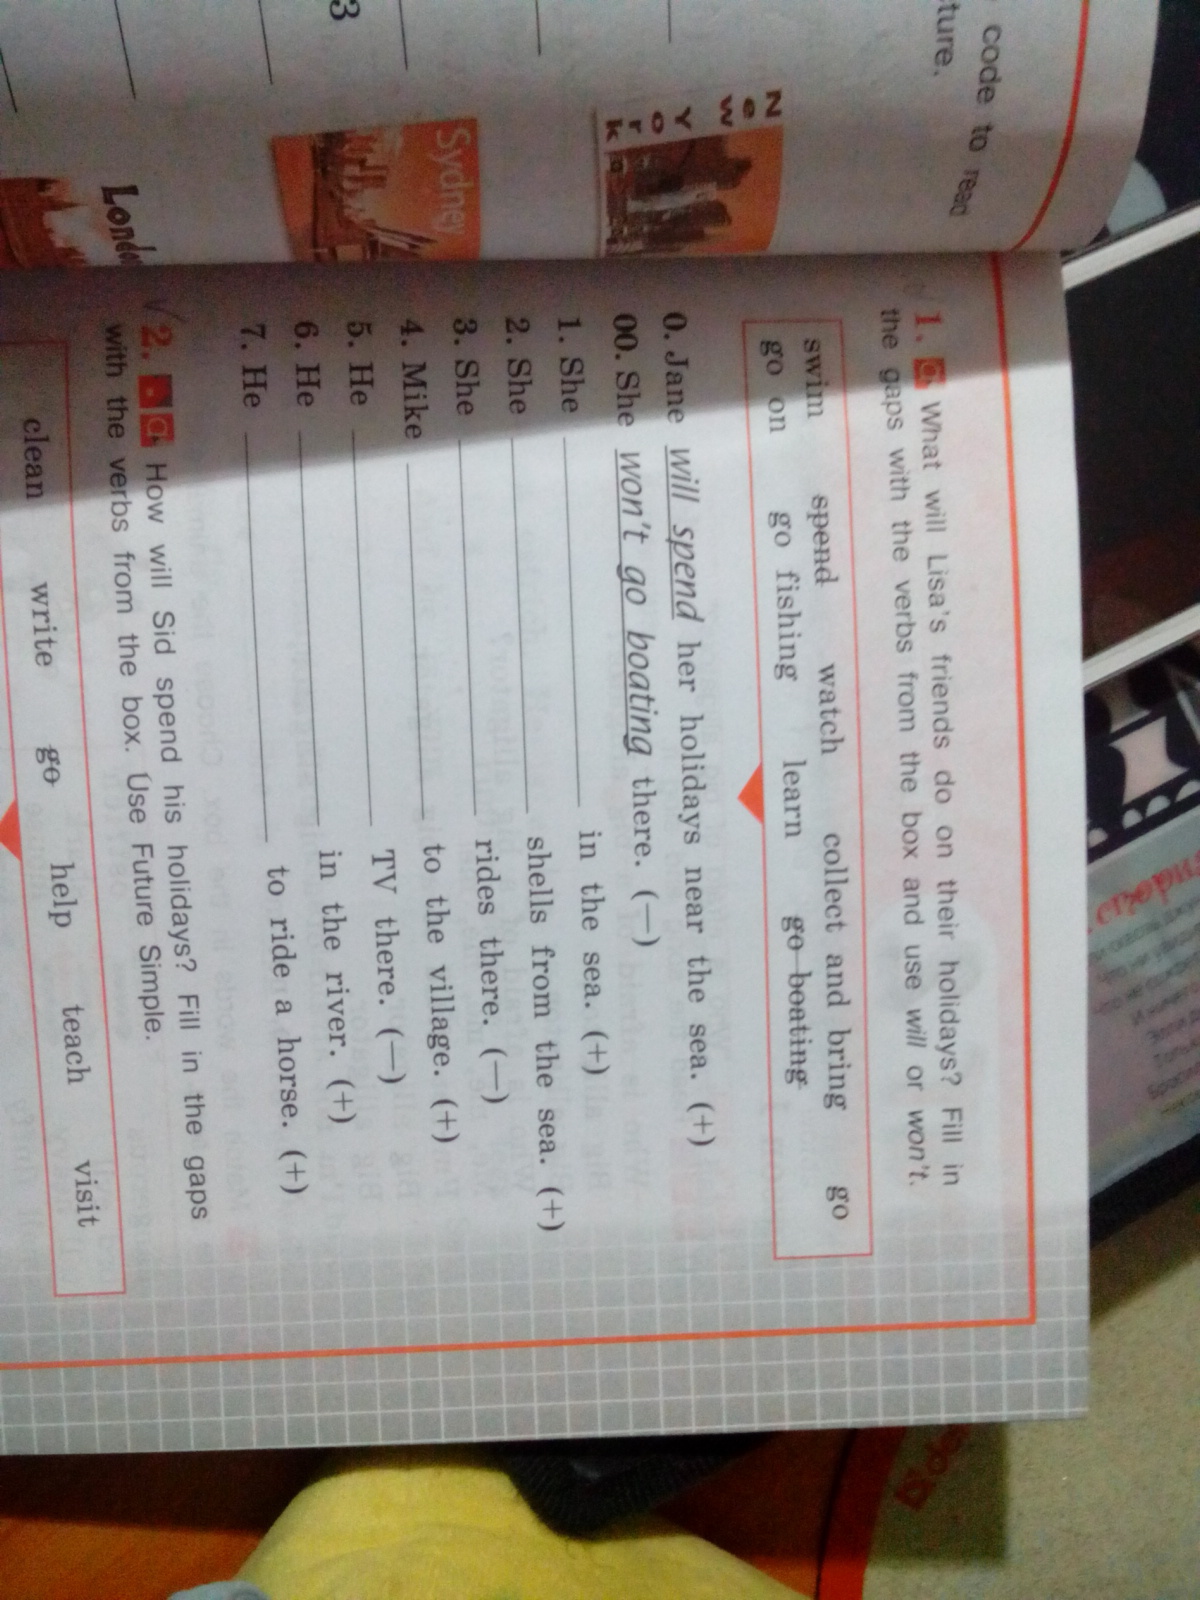 code to read
cture.
New
York
3
Sydney
1. What will Lisa's friends do on their holidays? Fill in
the gaps with the verbs from the box and use will or won't.
swim spend watch collect and bring go
go on go fishing learn go boating
0. Jane will spend her holidays near the sea. (+)
00. She won't go boating there. (—)
1. She ________ in the sea. (+)
2. She ________ shells from the sea. (+)
3. She ________ rides there. (—)
4. Mike ________ to the village. (+)
5. He ________ TV there. (—)
6. He ________ in the river. (+)
7. He ________ to ride a horse. (+)
2. How will Sid spend his holidays? Fill in the gaps
with the verbs from the box. Use Future Simple.
clean write go help teach visit